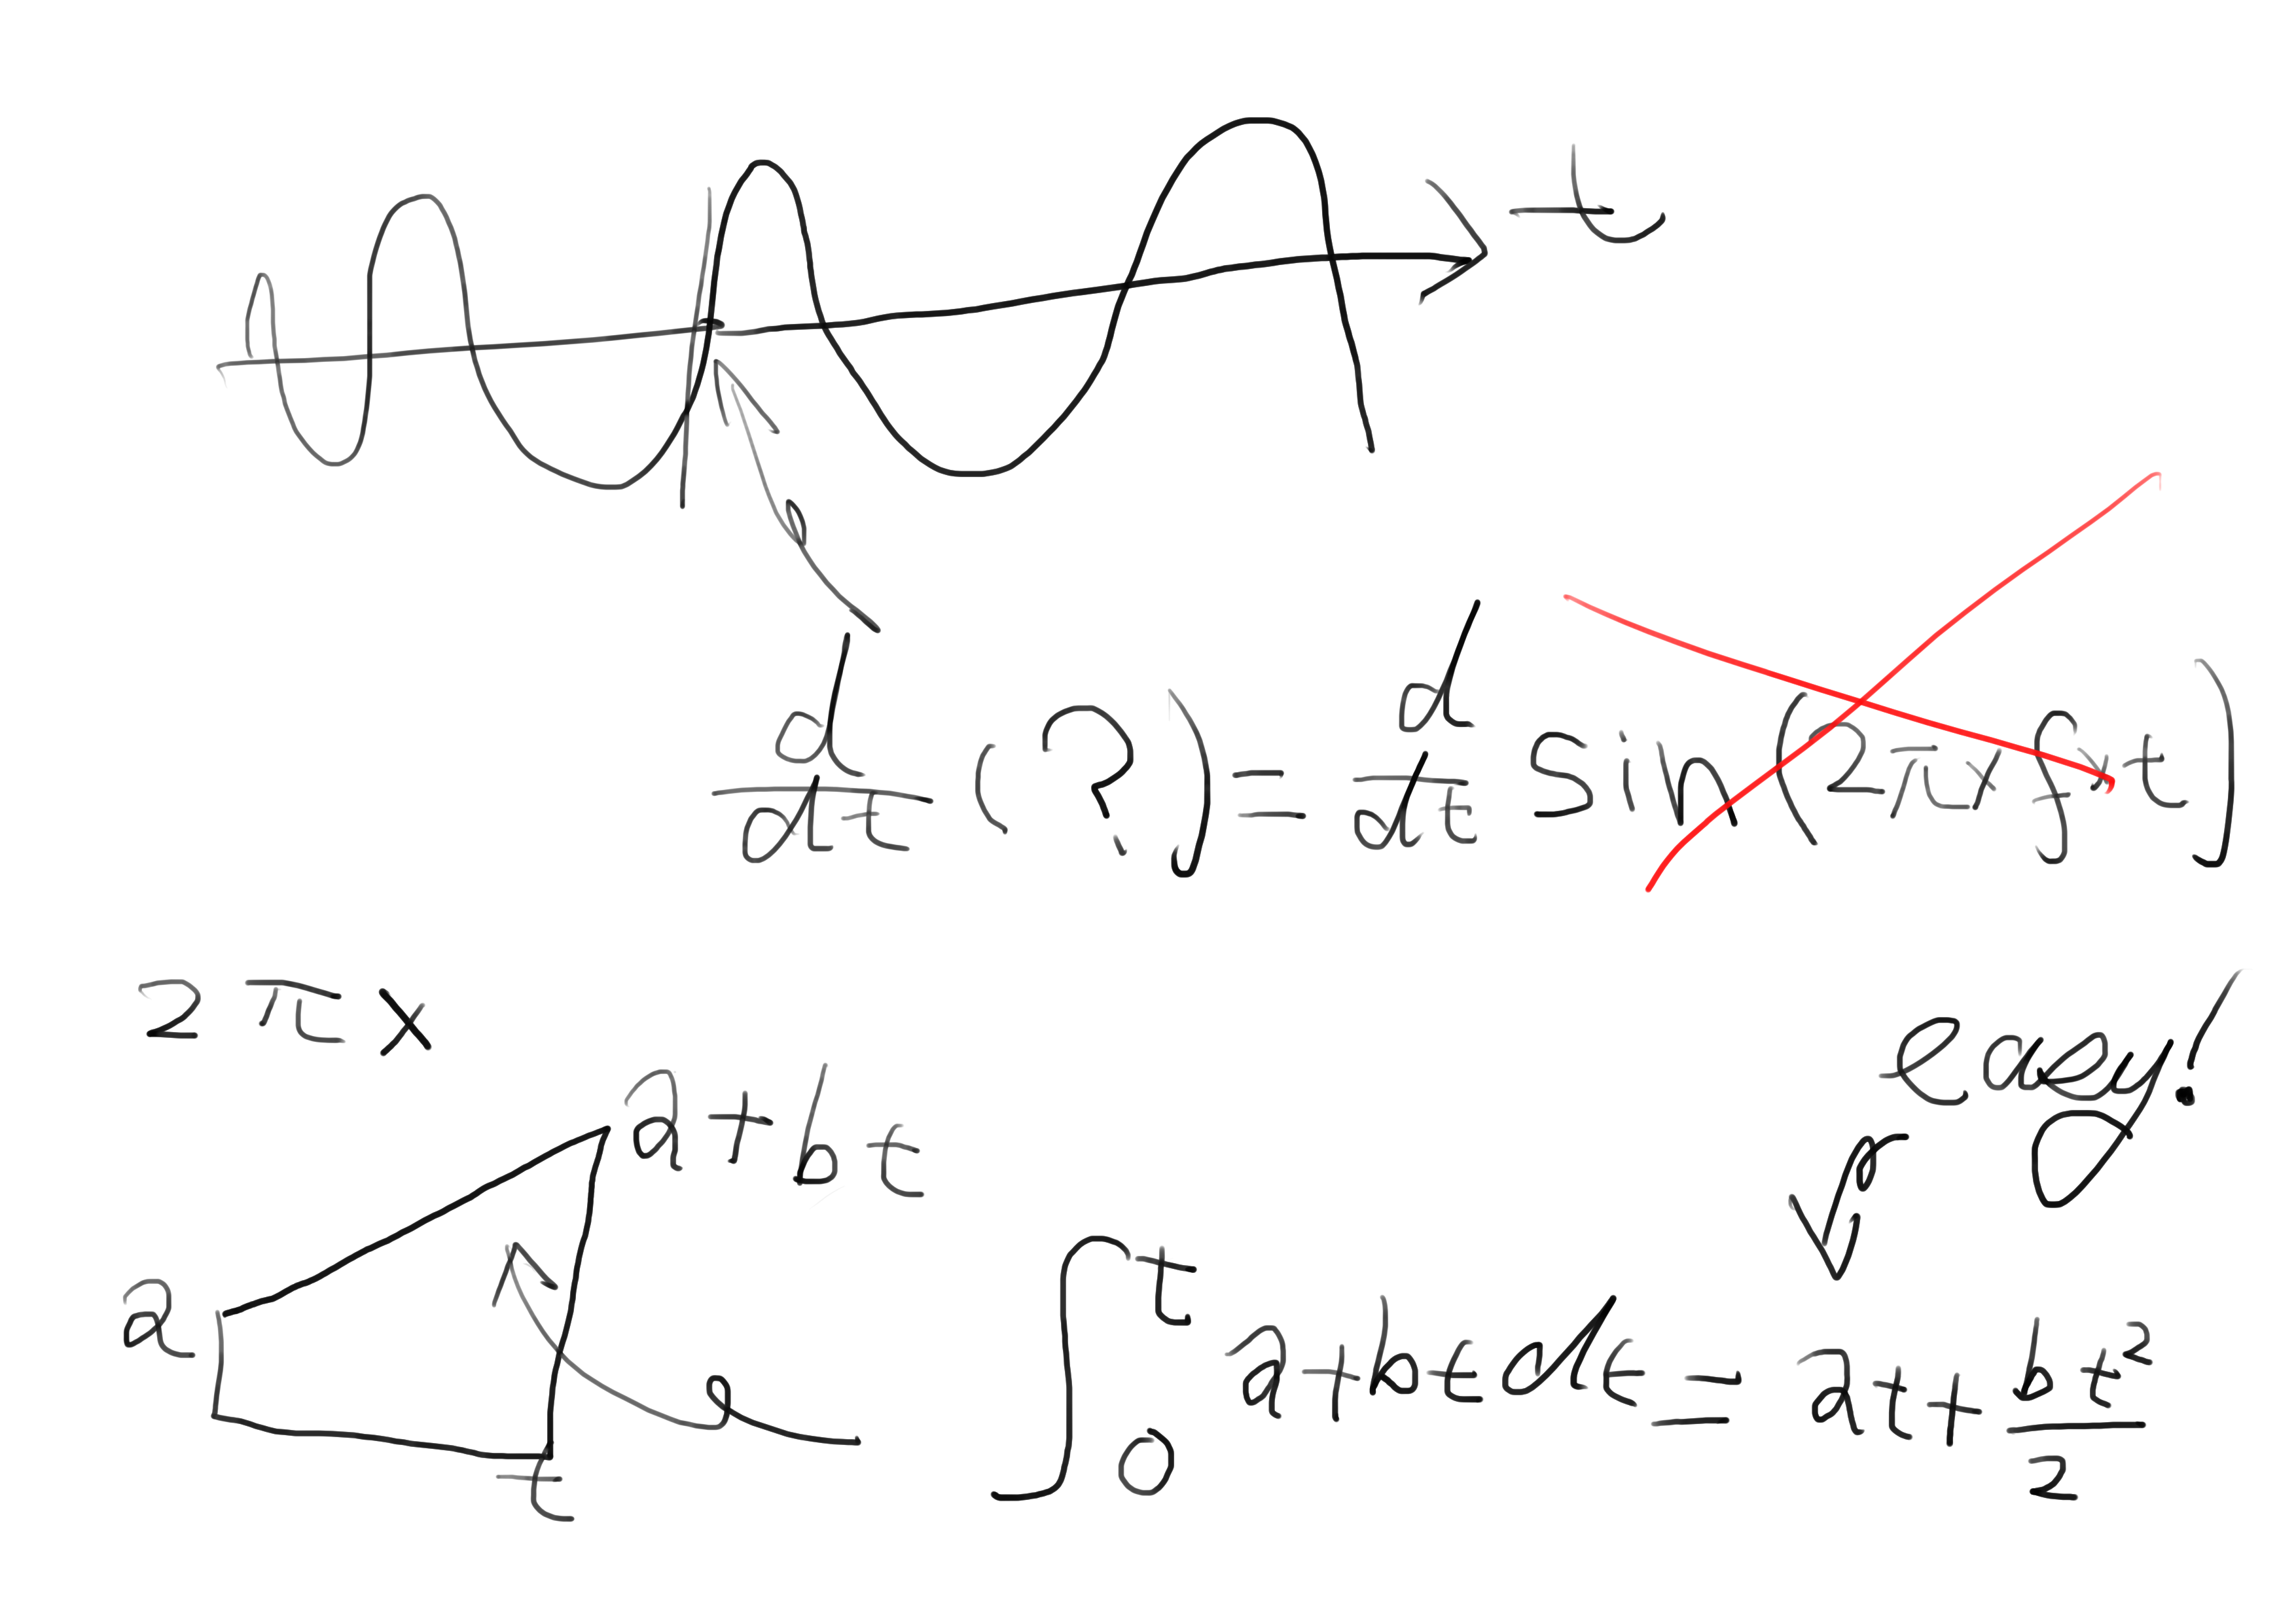 t
d/dt (?) = d/dt sin(2π×f×t)
2π×
easy!
a+bt
a
t
∫₀ᵗ a+bt dt = at + bt²/2